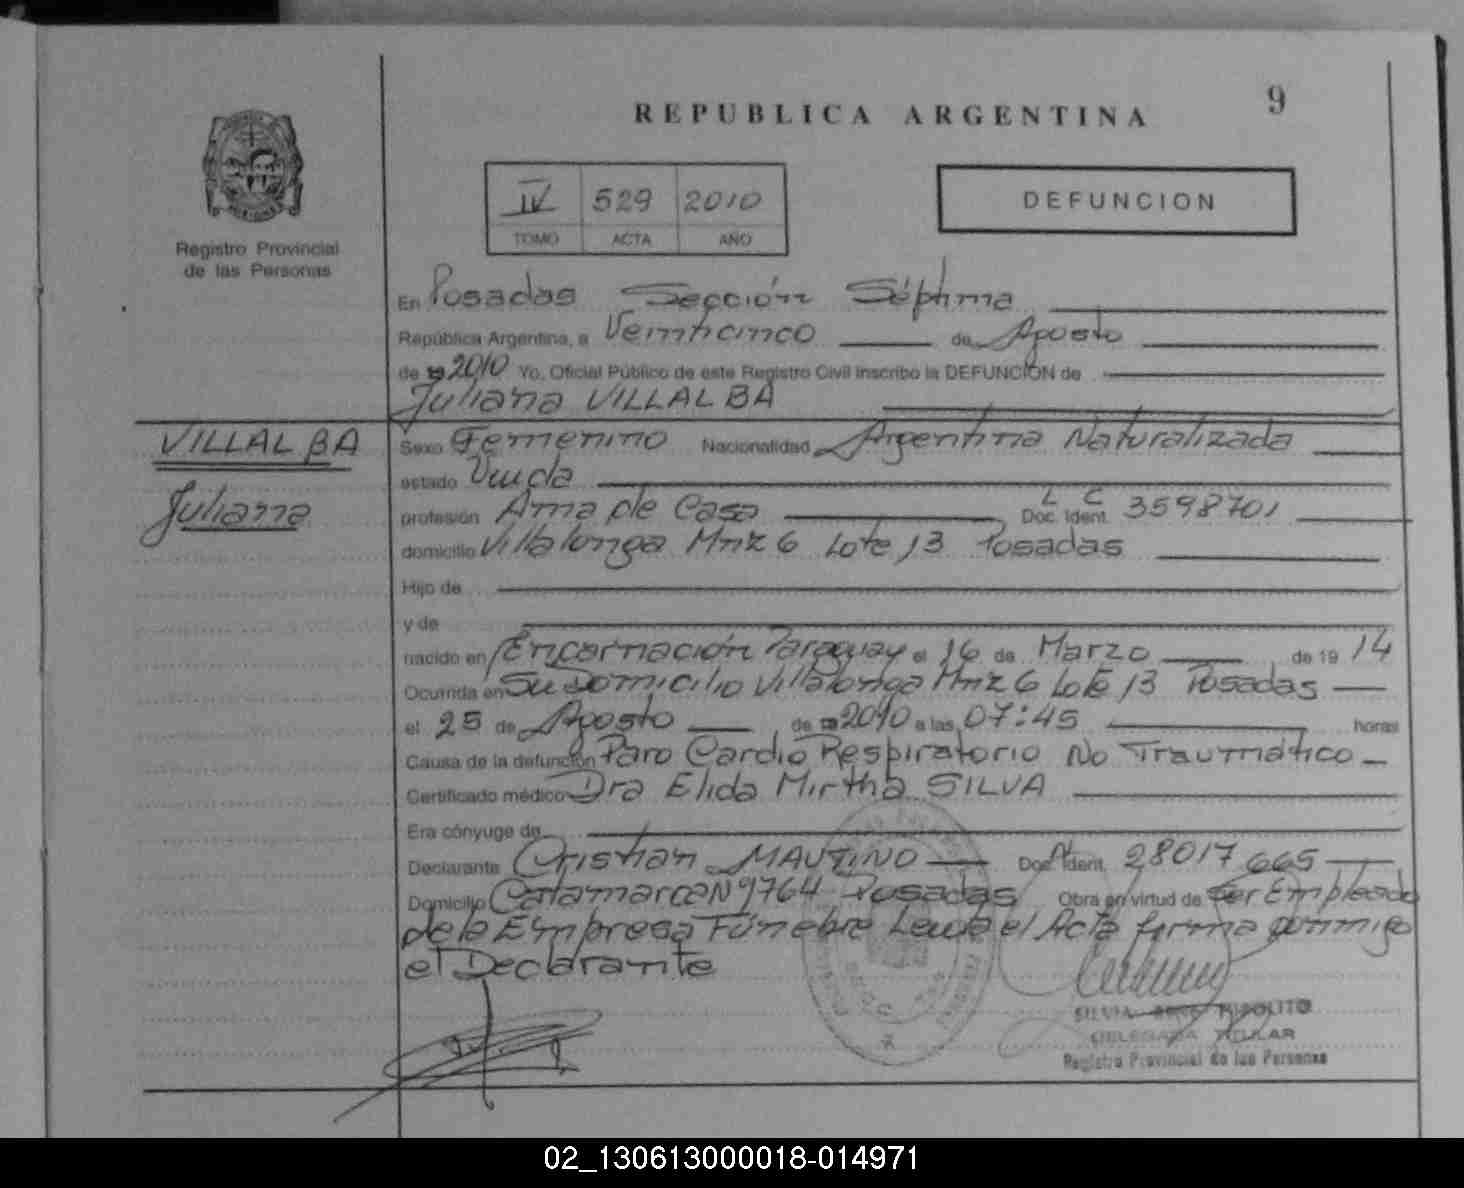 REPUBLICA ARGENTINA
9
IV 529 2010
TOMO ACTA AÑO
DEFUNCION
Registro Provincial
de las Personas
En Posadas Sección Séptima
República Argentina, a Veinticinco de Agosto
de 2010 Yo, Oficial Público de este Registro Civil inscribo la DEFUNCIÓN de
Juliana VILLALBA
VILLALBA
Juliana
Sexo Femenino Nacionalidad Argentina Naturalizada
estado Viuda
profesión Ama de Casa Doc. Ident. L C 3598701
domicilio Villalonga Mnz 6 Lote 13 Posadas
Hijo de
y de
nacido en Encarnación Paraguay el 16 de Marzo de 19 14
Ocurrida en Su Domicilio Villalonga Mnz 6 Lote 13 Posadas
el 25 de Agosto de 2010 a las 07:45 horas
Causa de la defunción Paro Cardio Respiratorio No Traumático
Certificado médico Dra Elida Mirtha SILVA
Era cónyuge de
Declarante Cristian MAUTINO Doc. Ident. 28017665
Domicilio Catamarca Nº 1764 Posadas Obra en virtud de Ser Empleado
de la Empresa Fúnebre Leida el Acta firma conmigo
el Declarante
SILVIA HIPOLITO
DELEGADA TITULAR
Registro Provincial de las Personas
02_130613000018-014971